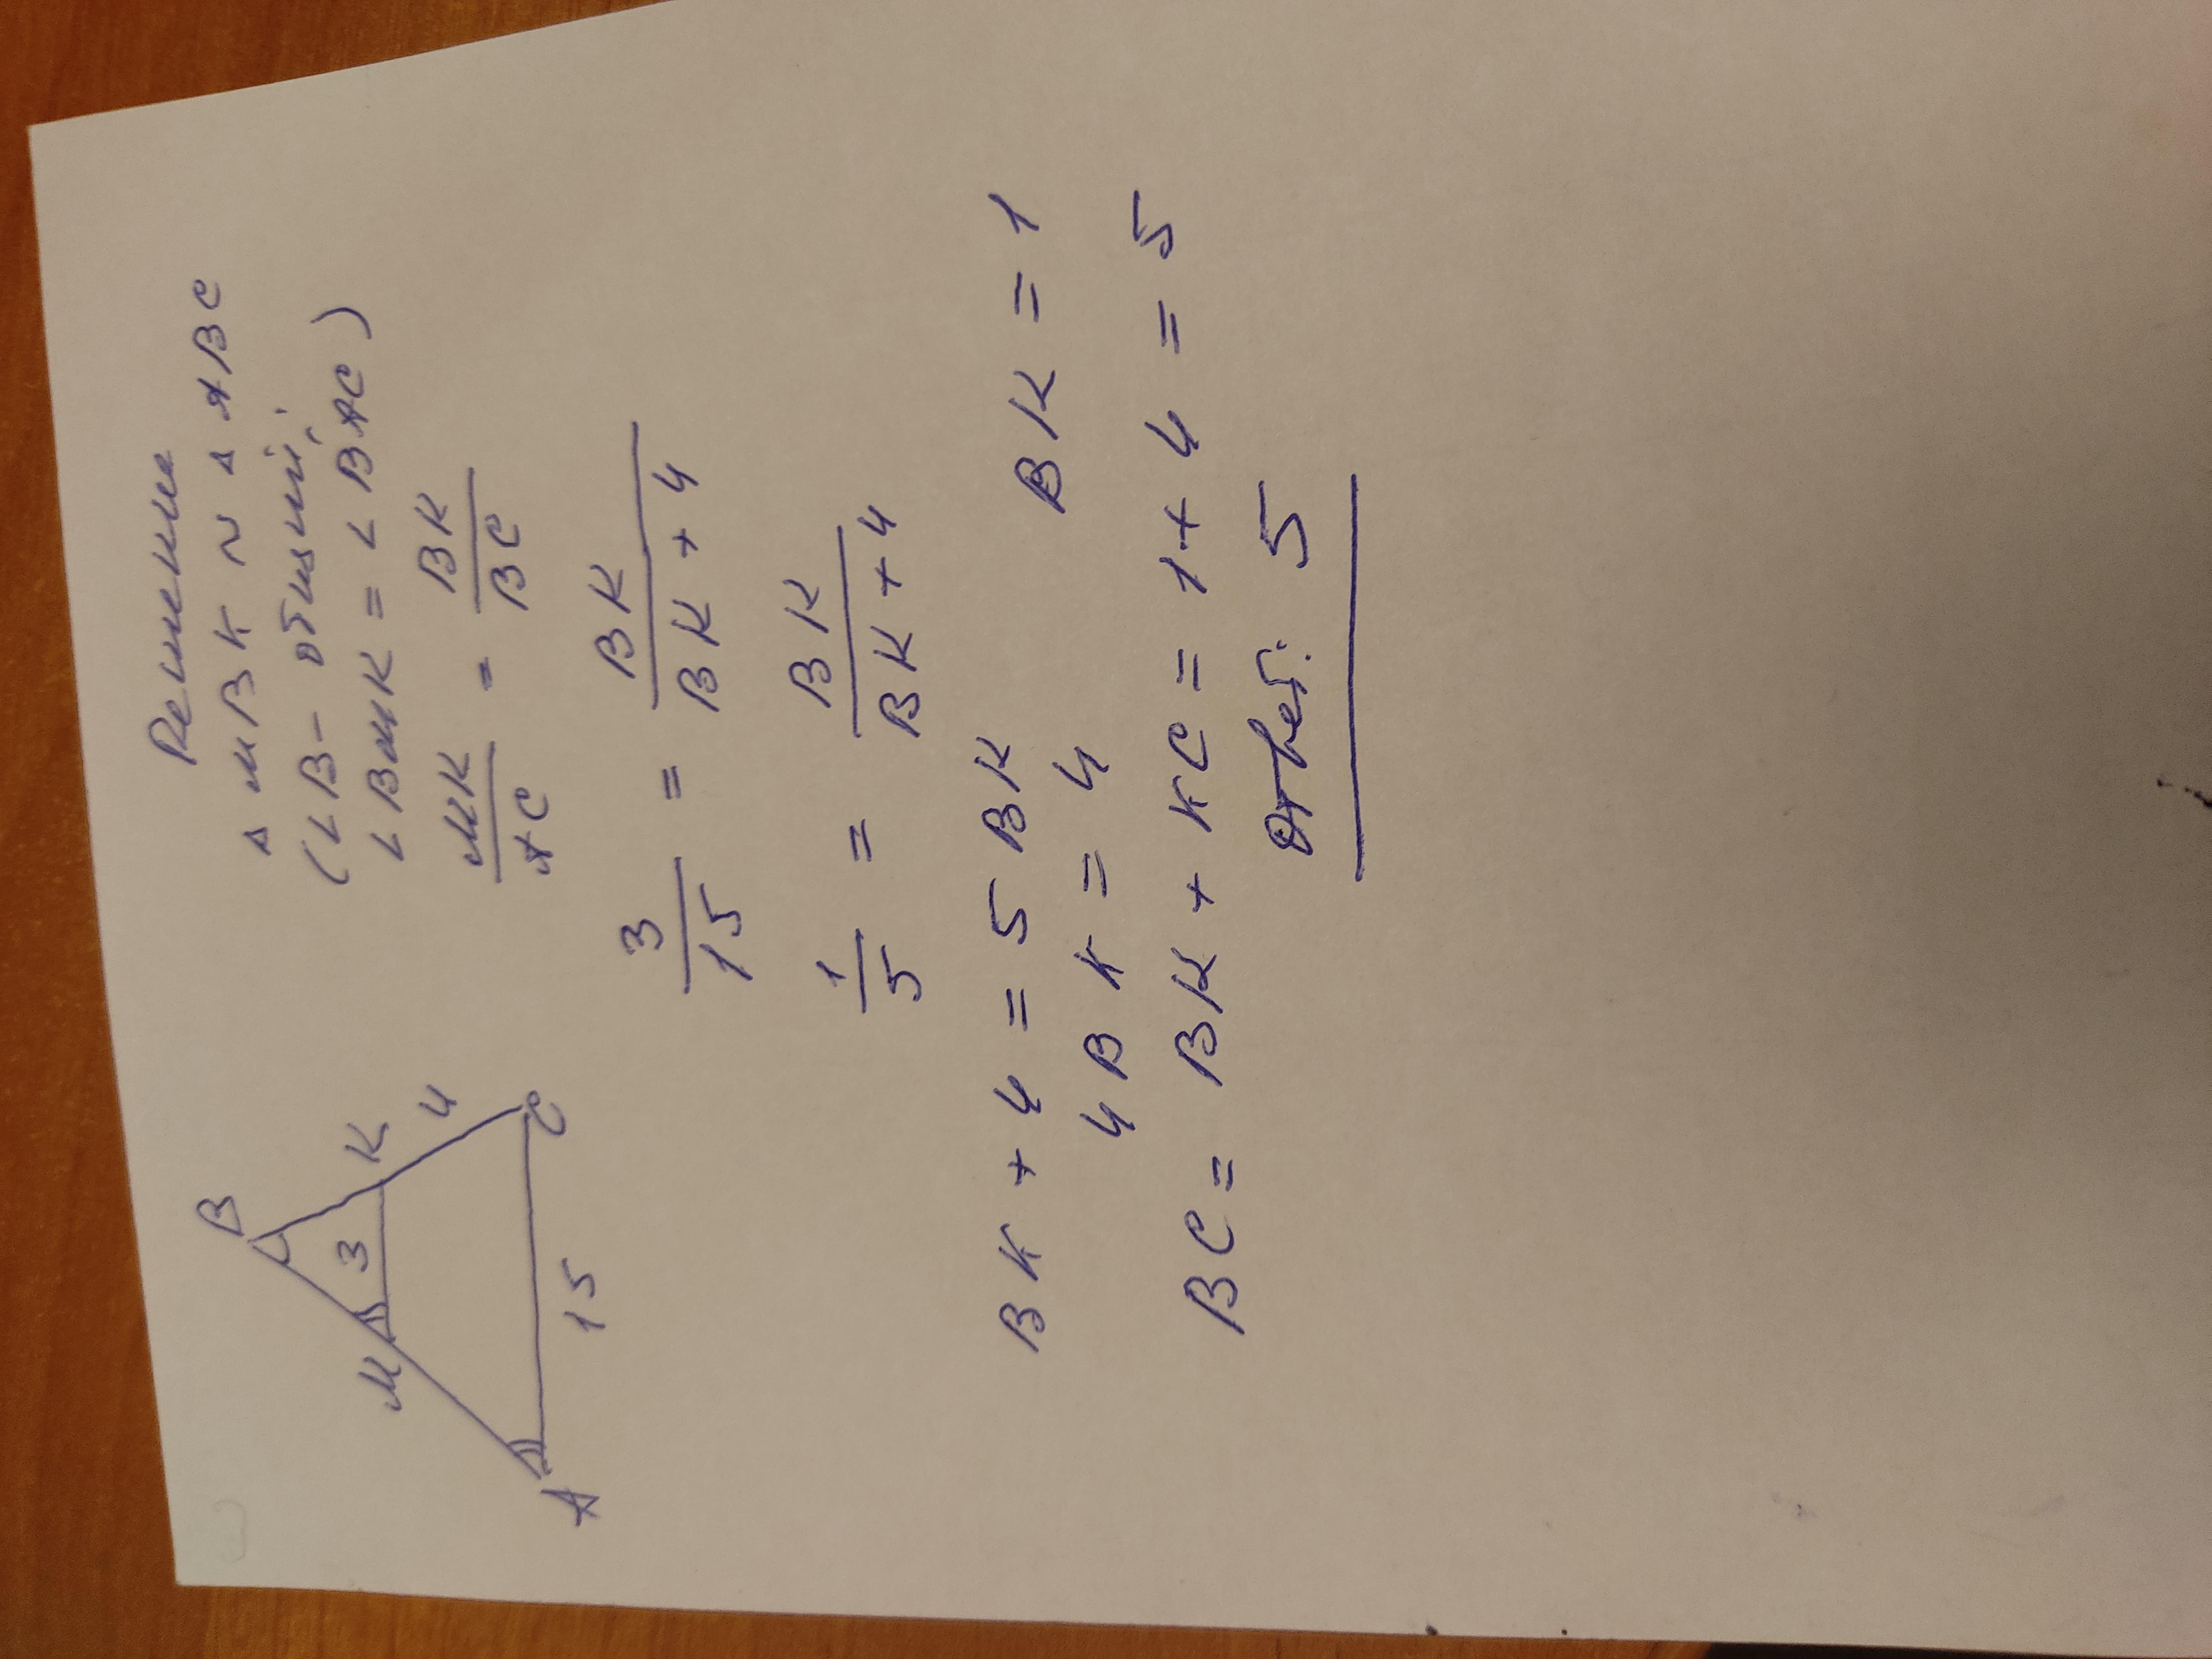 Решение
B
M 3 K
4
A 15 C
△ MBK ~ △ ABC
(∠B - общий,
∠BMK = ∠BAC)
MK/AC = BK/BC
3/15 = BK/BK + 4
1/5 = BK/BK + 4
BK + 4 = 5 BK
4 BK = 4 BK = 1
BC = BK + KC = 1 + 4 = 5
Ответ: 5